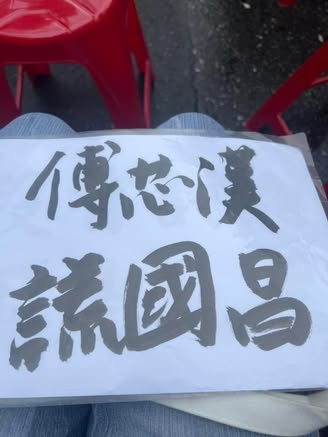 傅芯漢
謊國昌